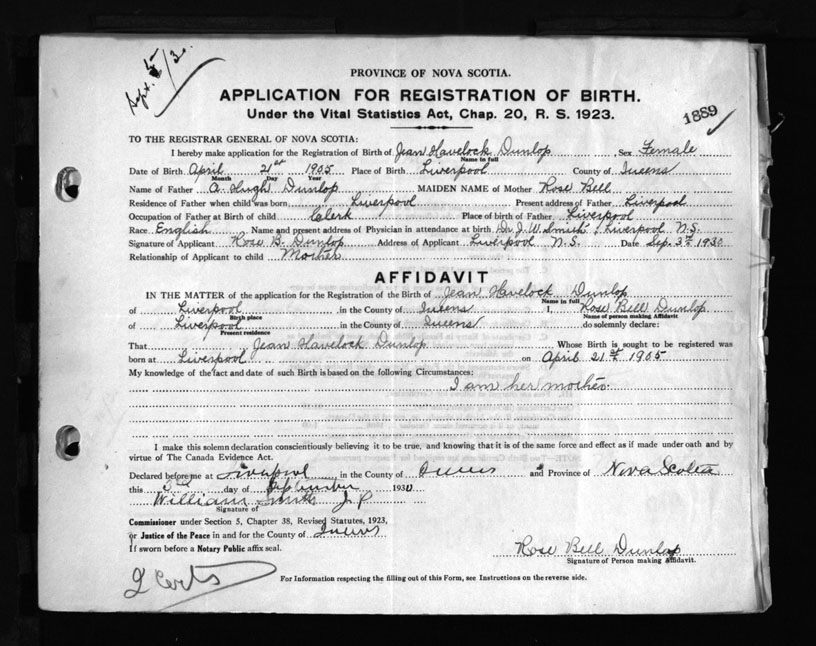 Sept. 5/30
PROVINCE OF NOVA SCOTIA.
APPLICATION FOR REGISTRATION OF BIRTH.
Under the Vital Statistics Act, Chap. 20, R. S. 1923.
1889
TO THE REGISTRAR GENERAL OF NOVA SCOTIA:
I hereby make application for the Registration of Birth of Jean Havelock Dunlop Sex Female
Name in full
Date of Birth April 21st 1905 Place of Birth Liverpool County of Queens
Month Day Year
Name of Father A. Hugh Dunlop MAIDEN NAME of Mother Rose Bell
Residence of Father when child was born Liverpool Present address of Father Liverpool
Occupation of Father at Birth of child Clerk Place of birth of Father Liverpool
Race English Name and present address of Physician in attendance at birth Dr. J. W. Smith, Liverpool N.S.
Signature of Applicant Rose B. Dunlop Address of Applicant Liverpool N.S. Date Sep. 3rd 1930
Relationship of Applicant to child Mother
AFFIDAVIT
IN THE MATTER of the application for the Registration of the Birth of Jean Havelock Dunlop
Name in full
of Liverpool in the County of Queens I, Rose Bell Dunlop
Birth place Name of person making Affidavit
of Liverpool in the County of Queens do solemnly declare:
Present residence
That Jean Havelock Dunlop Whose Birth is sought to be registered was
born at Liverpool on April 21st 1905
My knowledge of the fact and date of such Birth is based on the following Circumstances:
I am her mother.
I make this solemn declaration conscientiously believing it to be true, and knowing that it is of the same force and effect as if made under oath and by
virtue of The Canada Evidence Act.
Declared before me at Liverpool in the County of Queens and Province of Nova Scotia
this day of September 1930
William Smith J. P.
Signature of
Commissioner under Section 5, Chapter 38, Revised Statutes, 1923,
or Justice of the Peace in and for the County of Queens
If sworn before a Notary Public affix seal.
Rose Bell Dunlop
Signature of Person making Affidavit.
2 Certs
For Information respecting the filling out of this Form, see Instructions on the reverse side.